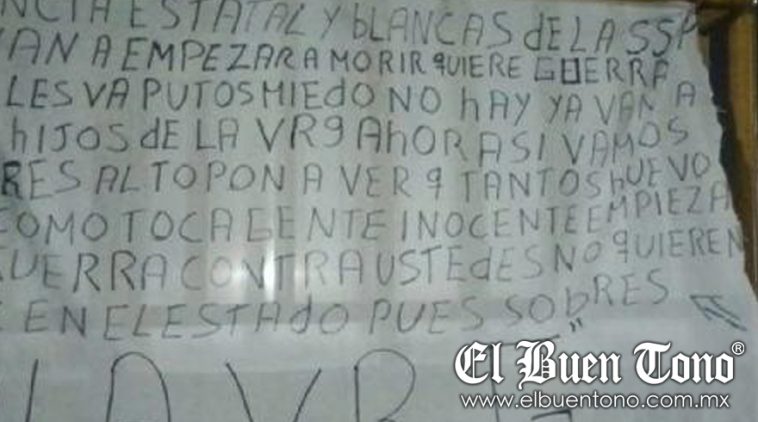 NCIA ESTATAL Y bLANCAS dE LA SSP
VAN A EMPEZAR A MORIR qUIERE GUERRA
LES VA PUTOS MIEdO NO hAY YA VAN A
hIJOS dE LA VR9 AhORA SI VAMOS
RES AL TOPON A VER q TANTOS hUEVO
COMO TOCA GENTE INOCENTE EMPIEZA
UERRA CONTRA USTEdES NO qUIEREN
E EN EL ESTAdO PUES SObRES
El Buen Tono®
www.elbuentono.com.mx